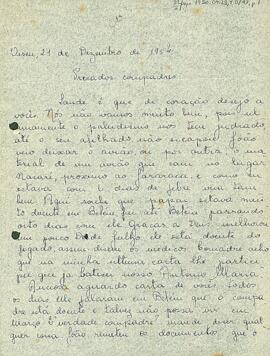 Viseu, 21 de Dezembro de 195
Prezados compadres
Saude é que de coração desejo a
vocês. Nós não vamos muito bem, pois ul
timamente o paludismo nos tem
até o seu afilhado não escapou João
veio deixar o avião, ou por outra uma
de um avião que caiu no lugar
próximo ao e como eu
estava com 6 dias de febre vim tam
bem. Aqui soube que papai estava mais
doente em Belem fui até Belem passando
oito dias com ele Graças a Deus melhorou
um pouco do de este doente do
figado, assim dizem os médicos. Comadre acho
que na minha ultima carta lhe partici
pei que ja batizei nosso Antonio Maria.
Ansiosa aguardo carta de vocês, todos
os dias elle falaram em Belem que o compa
dre está doente e talvez não possa vir em
Março. É verdade compadre? mande dizer qual
quer coisa. João remeteu os documentos que o